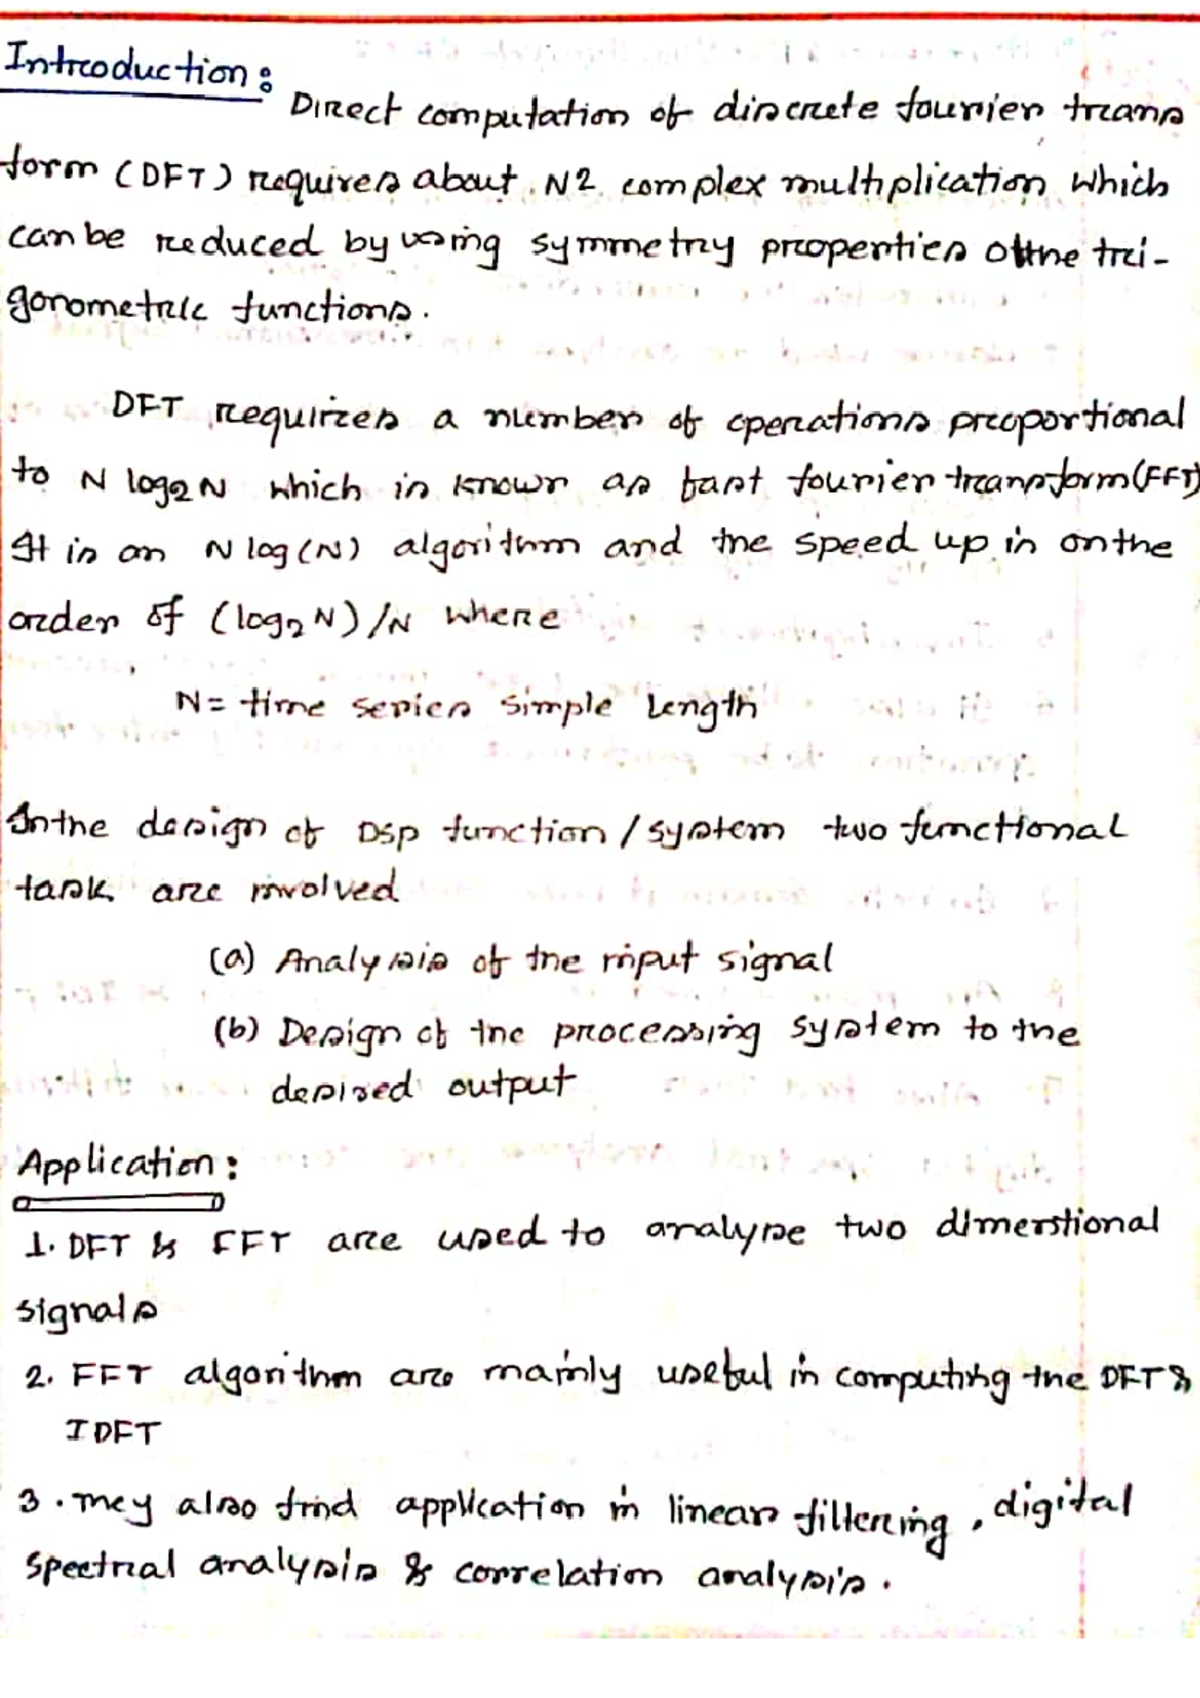 Introduction:
Direct computation of discrete fourier trans
form (DFT) requires about N2 complex multiplication which
can be reduced by using symmetry properties of the tri-
gonometric functions.
DFT requires a number of operations proportional
to N log2N which is known as fast fourier transform (FFT)
It is an N log (N) algorithm and the speed up is on the
order of (log2 N)/N where
N = time series simple length
In the design of DSP function / system two functional
task are involved
(a) Analysis of the input signal
(b) Design of the processing system to the
desired output
Application:
1. DFT & FFT are used to analyse two dimenstional
signals
2. FFT algorithm are mainly useful in computing the DFT &
IDFT
3. They also find application in linear filtering, digital
spectral analysis & correlation analysis.